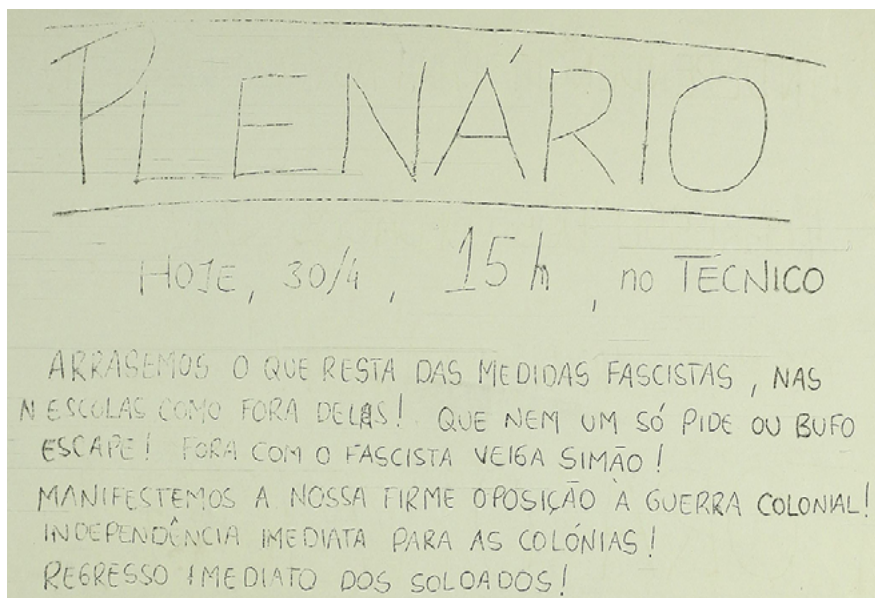 PLENÁRIO
HOJE, 30/4, 15h, no TECNICO
ARRASEMOS O QUE RESTA DAS MEDIDAS FASCISTAS, NAS
N ESCOLAS COMO FORA DELAS! QUE NEM UM SÓ PIDE OU BUFO
ESCAPE! FORA COM O FASCISTA VEIGA SIMÃO!
MANIFESTEMOS A NOSSA FIRME OPOSIÇÃO À GUERRA COLONIAL!
INDEPENDÊNCIA IMEDIATA PARA AS COLÓNIAS!
REGRESSO IMEDIATO DOS SOLDADOS!